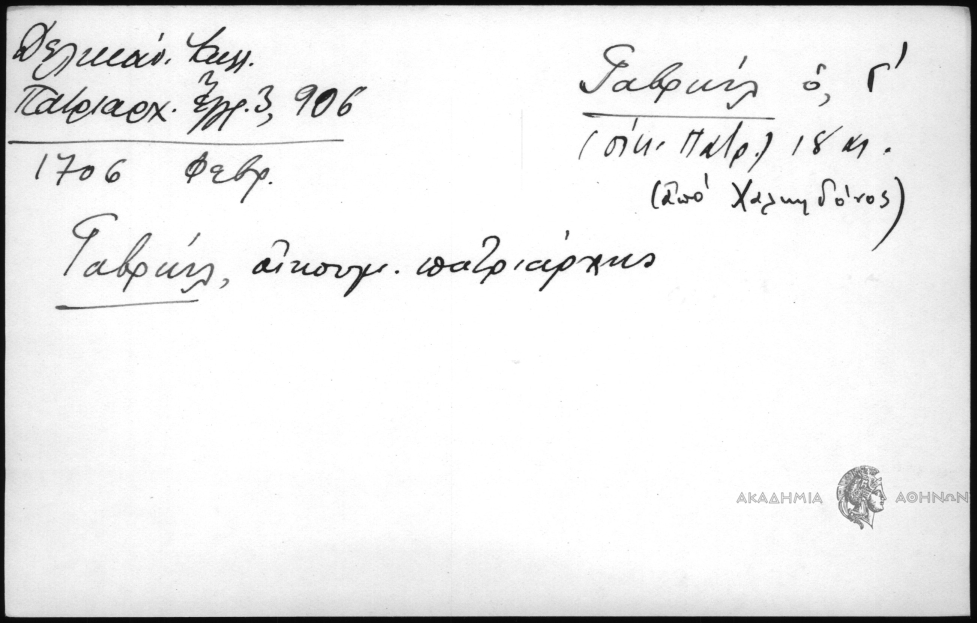 Δελικάν. Καλ.
Πατριαρχ. Ἔγγρ. 3, 906
1706 Φεβρ.
Γαβριήλ ὁ, Γ'
(οἰκ. Πατρ.) 18 αι.
(ἀπό Χαλκηδόνος)
Γαβριήλ, οἰκουμ. πατριάρχης
ΑΚΑΔΗΜΙΑ ΑΘΗΝΩΝ